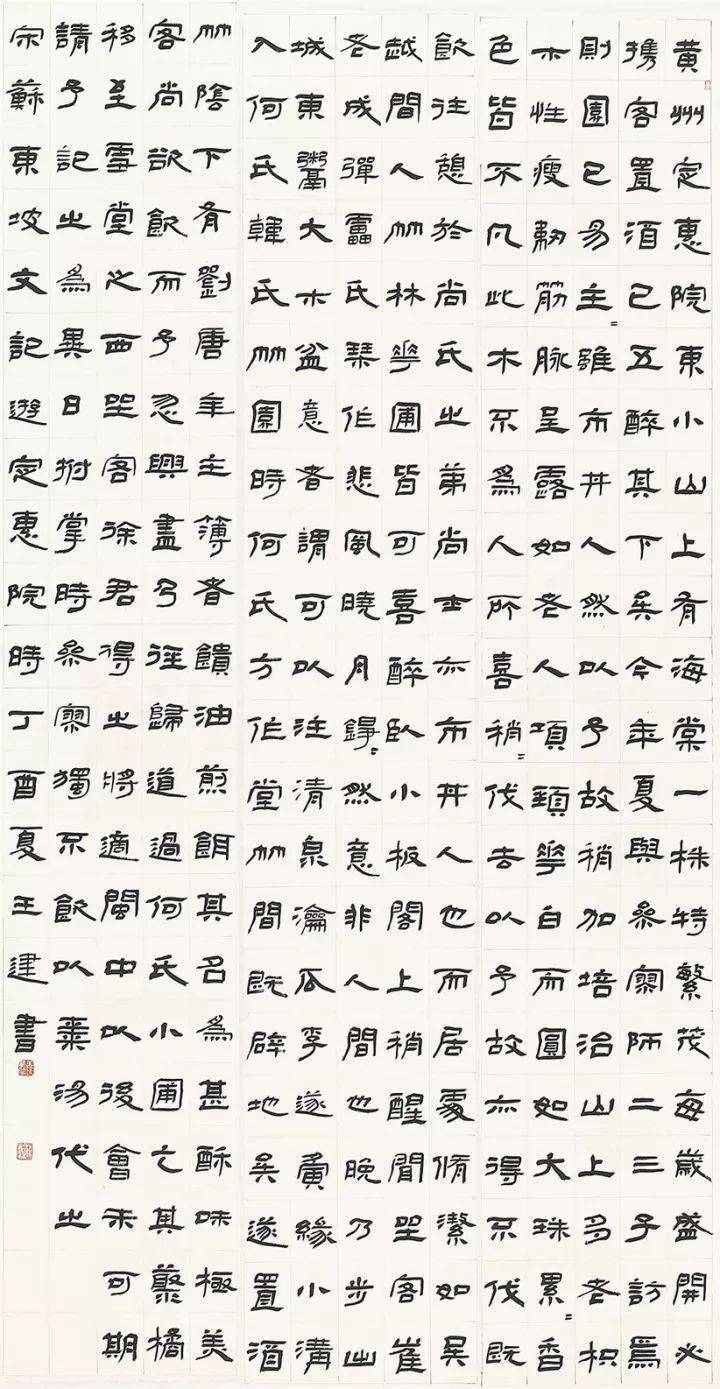 黄州定惠院東小山上有海棠一株特繁茂每歲盛開必
携客置酒已五醉其下矣今年夏與參寥師二三子訪焉
則園已易主=雖市井人然以予故稍加培治山上多老枳
木性瘦韌筋脉呈露如老人項頸華白而圓如大珠累=香
色皆不凡此木不為人所喜稍=伐去以予故亦得不伐既
飲往憩於尚氏之第尚士亦市井人也而居處脩潔如吳
越間人竹林華圃皆可喜醉臥小板閣上稍醒聞坐客崔
老成彈雷氏琴作悲風曉月錚=然意非人間也晚乃步出
城東鬻大木盆意者謂可以注清泉瀹瓜李遂夤緣小溝
入何氏韓氏竹園時何氏方作堂竹間既辟地矣遂置酒
竹陰下有劉唐年主簿者饋油煎餌其名為甚酥味極美
客尚欲飲而予忽興盡乃徑歸道過何氏小圃乞其藂橘
移至雪堂之西坐客徐君得之將適閩中以後會未可期
請予記之為異日拊掌時參寥獨不飲以棗湯代之
宋蘇東坡文記遊定惠院時丁酉夏王建書